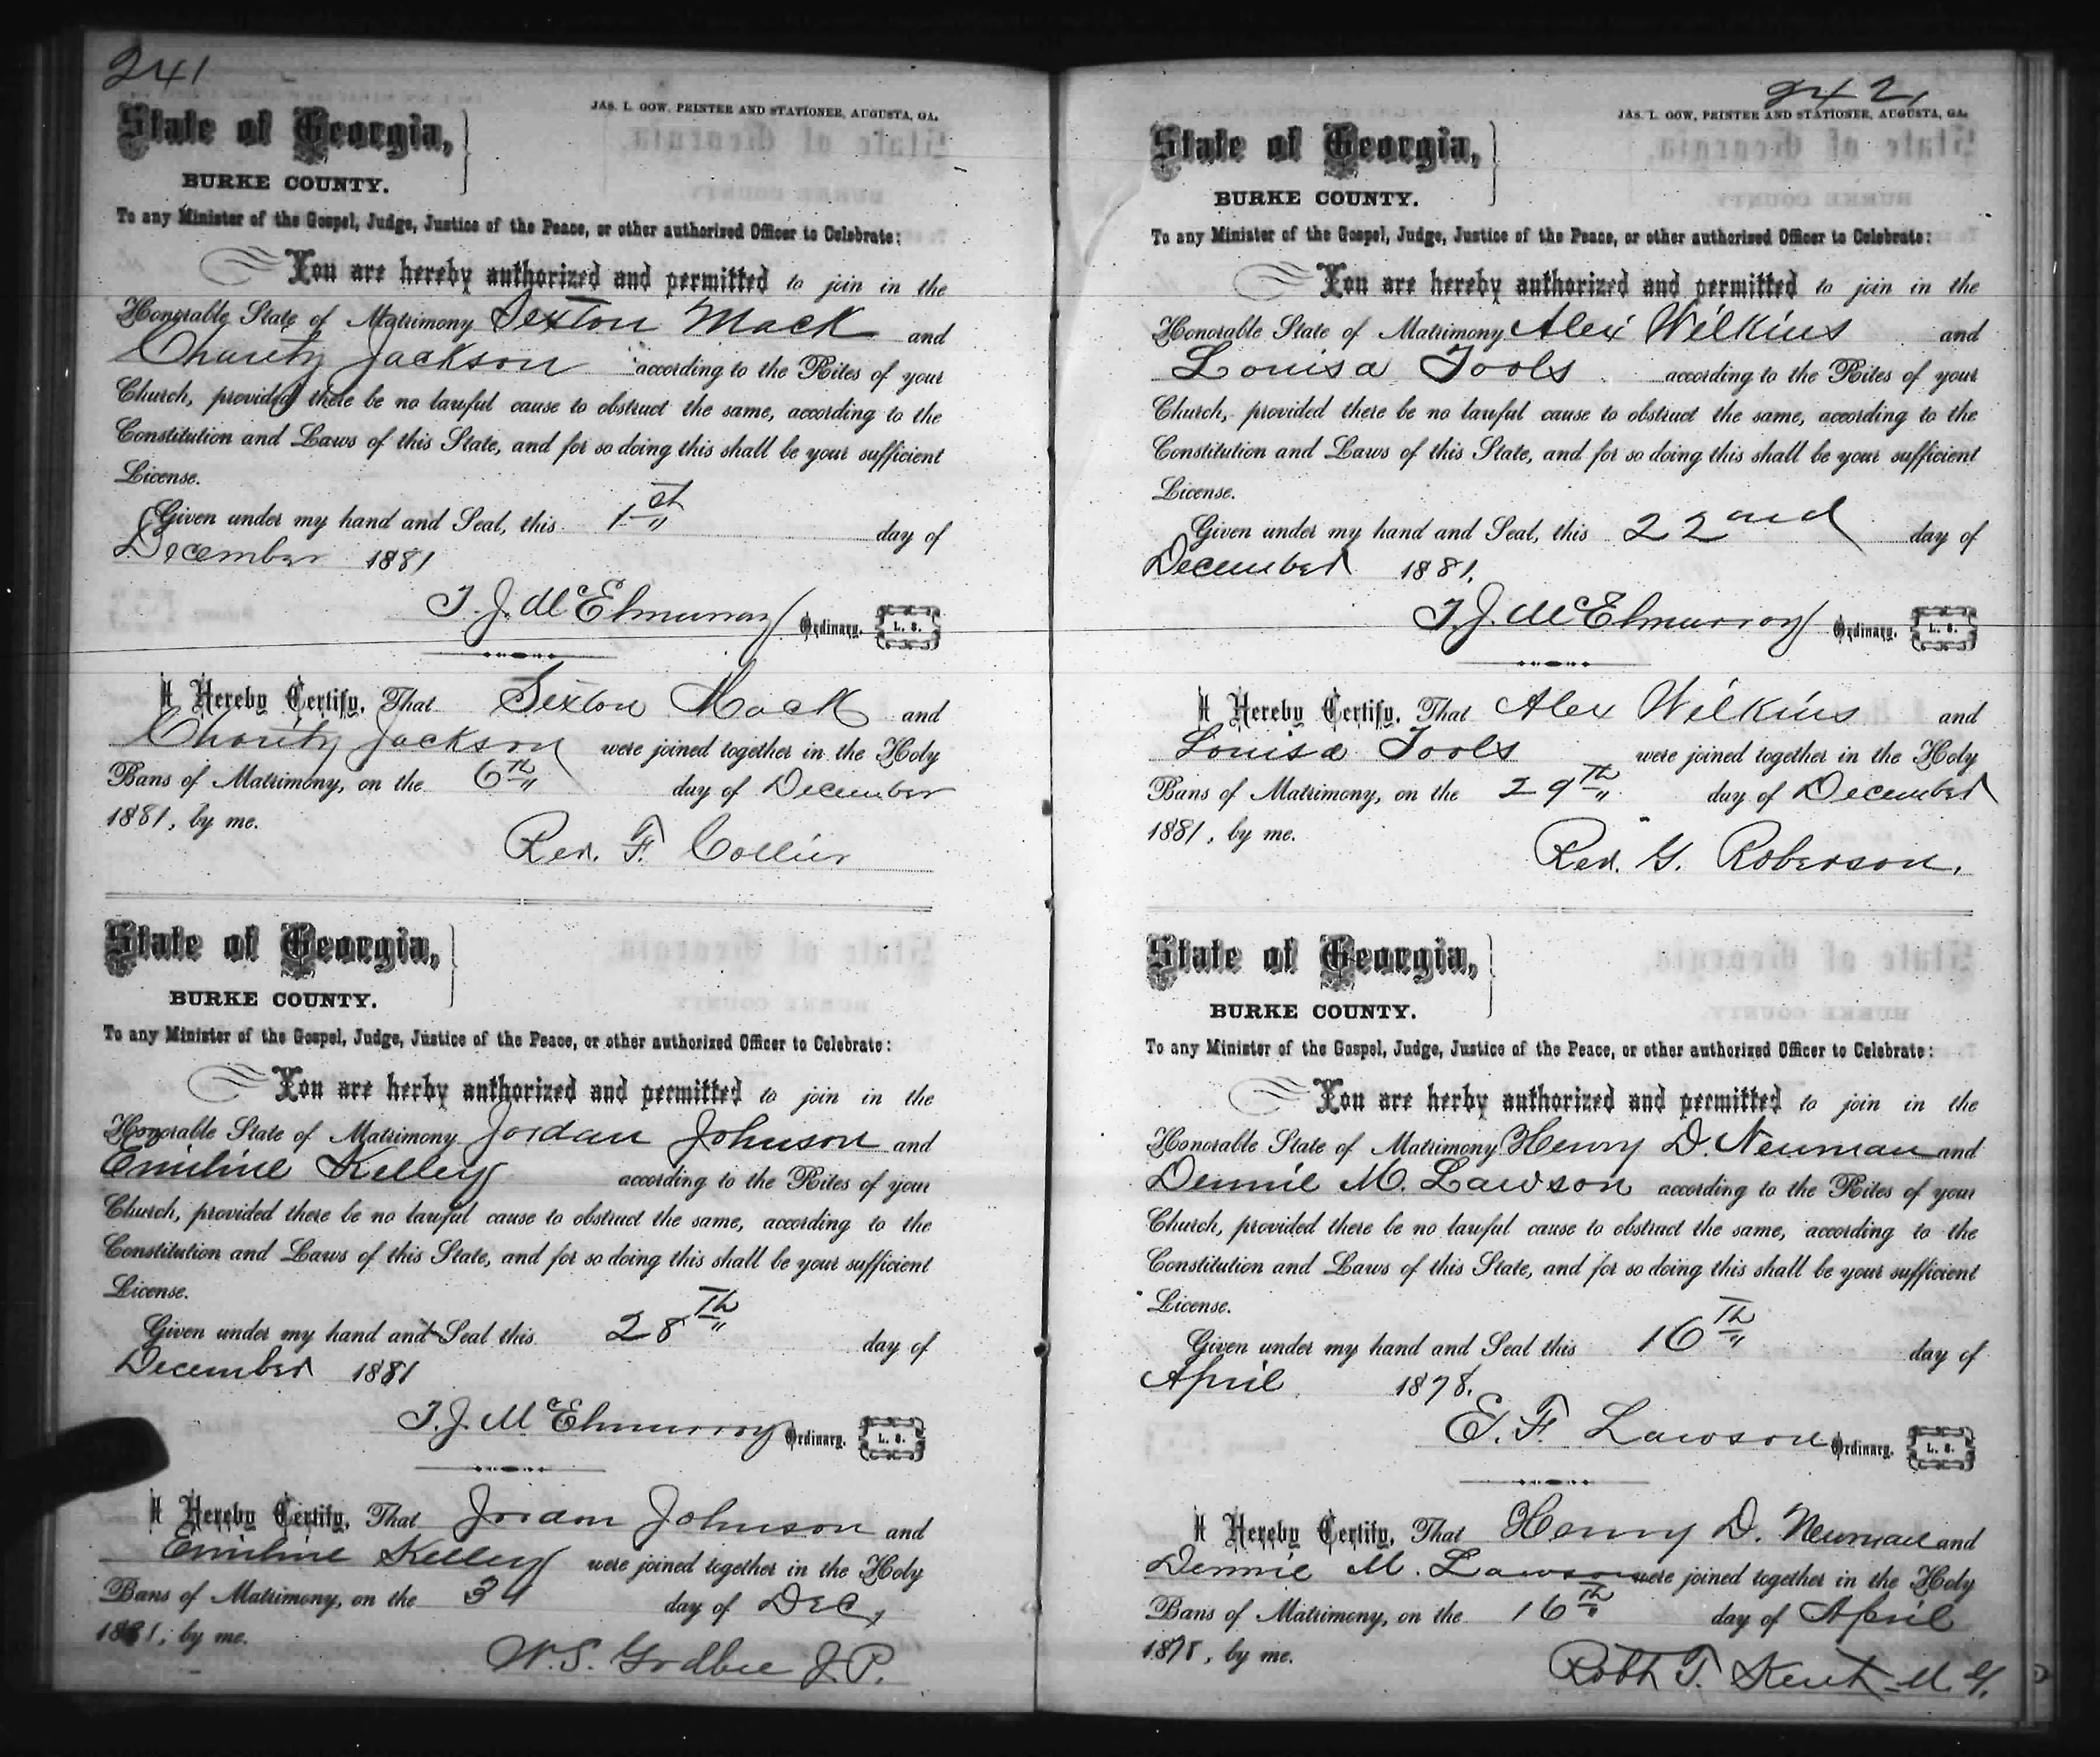 241
JAS. L. GOW, PRINTER AND STATIONER, AUGUSTA, GA.
State of Georgia,
BURKE COUNTY.
To any Minister of the Gospel, Judge, Justice of the Peace, or other authorized Officer to Celebrate:
You are hereby authorized and permitted to join in the
Honorable State of Matrimony Sexton Mack and
Charity Jackson according to the Rites of your
Church, provided there be no lawful cause to obstruct the same, according to the
Constitution and Laws of this State, and for so doing this shall be your sufficient
License.
Given under my hand and Seal, this 1st day of
December 1881
T. J. McElmurray Ordinary. L. S.
I Hereby Certify, That Sexton Mack and
Charity Jackson were joined together in the Holy
Bans of Matrimony, on the 6th day of December
1881, by me.
Rev. F. Collier
State of Georgia,
BURKE COUNTY.
To any Minister of the Gospel, Judge, Justice of the Peace, or other authorized Officer to Celebrate:
You are herby authorized and permitted to join in the
Honorable State of Matrimony Jordan Johnson and
Emiline Kelley according to the Rites of your
Church, provided there be no lawful cause to obstruct the same, according to the
Constitution and Laws of this State, and for so doing this shall be your sufficient
License.
Given under my hand and Seal this 28Th day of
December 1881
T. J. McElmurray Ordinary. L. S.
I Hereby Certify, That Jordan Johnson and
Emiline Kelley were joined together in the Holy
Bans of Matrimony, on the day of Dec,
1881, by me.
W. S. Godbee J. P.
242
JAS. L. GOW, PRINTER AND STATIONER, AUGUSTA, GA.
State of Georgia,
BURKE COUNTY.
To any Minister of the Gospel, Judge, Justice of the Peace, or other authorized Officer to Celebrate:
You are hereby authorized and permitted to join in the
Honorable State of Matrimony Alex Wilkins and
Louisa Tools according to the Rites of your
Church, provided there be no lawful cause to obstruct the same, according to the
Constitution and Laws of this State, and for so doing this shall be your sufficient
License.
Given under my hand and Seal, this 22nd day of
December 1881.
T. J. McElmurray Ordinary. L. S.
I Hereby Certify, That Alex Wilkins and
Louisa Tools were joined together in the Holy
Bans of Matrimony, on the 29Th day of December
1881, by me.
Rev. G. Roberson.
State of Georgia,
BURKE COUNTY.
To any Minister of the Gospel, Judge, Justice of the Peace, or other authorized Officer to Celebrate:
You are herby authorized and permitted to join in the
Honorable State of Matrimony Henry D. Newman and
Dennie M. Lawson according to the Rites of your
Church, provided there be no lawful cause to obstruct the same, according to the
Constitution and Laws of this State, and for so doing this shall be your sufficient
License.
Given under my hand and Seal this 16Th day of
April 1878.
E. F. Lawson Ordinary. L. S.
I Hereby Certify, That Henry D. Newman and
Dennie M. Lawson were joined together in the Holy
Bans of Matrimony, on the 16Th day of April
1878, by me.
Robt T. Kent M. G.